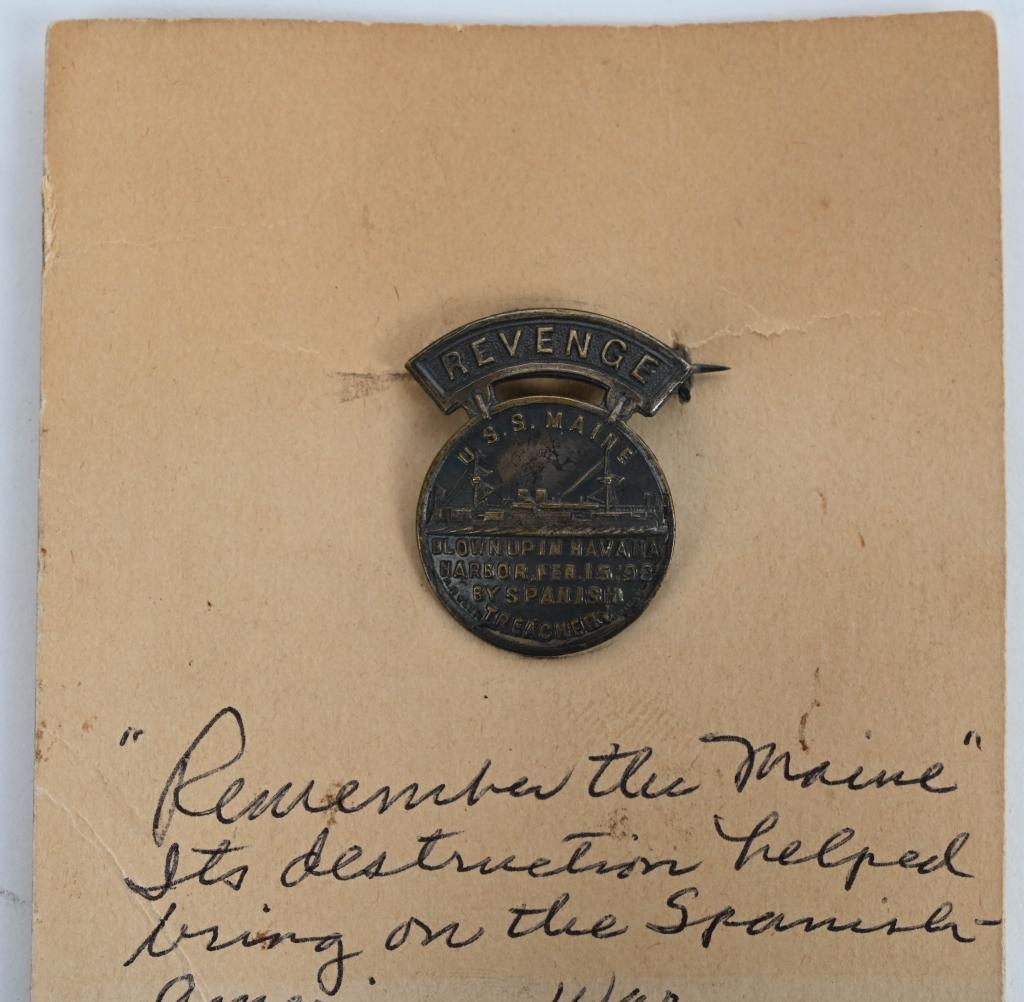 REVENGE
U.S.S. MAINE
BLOWN UP IN HAVANA
HARBOR, FEB. 15, '98
BY SPANISH
TREACHERY
"Remember the Maine"
Its destruction helped
bring on the Spanish-
American War